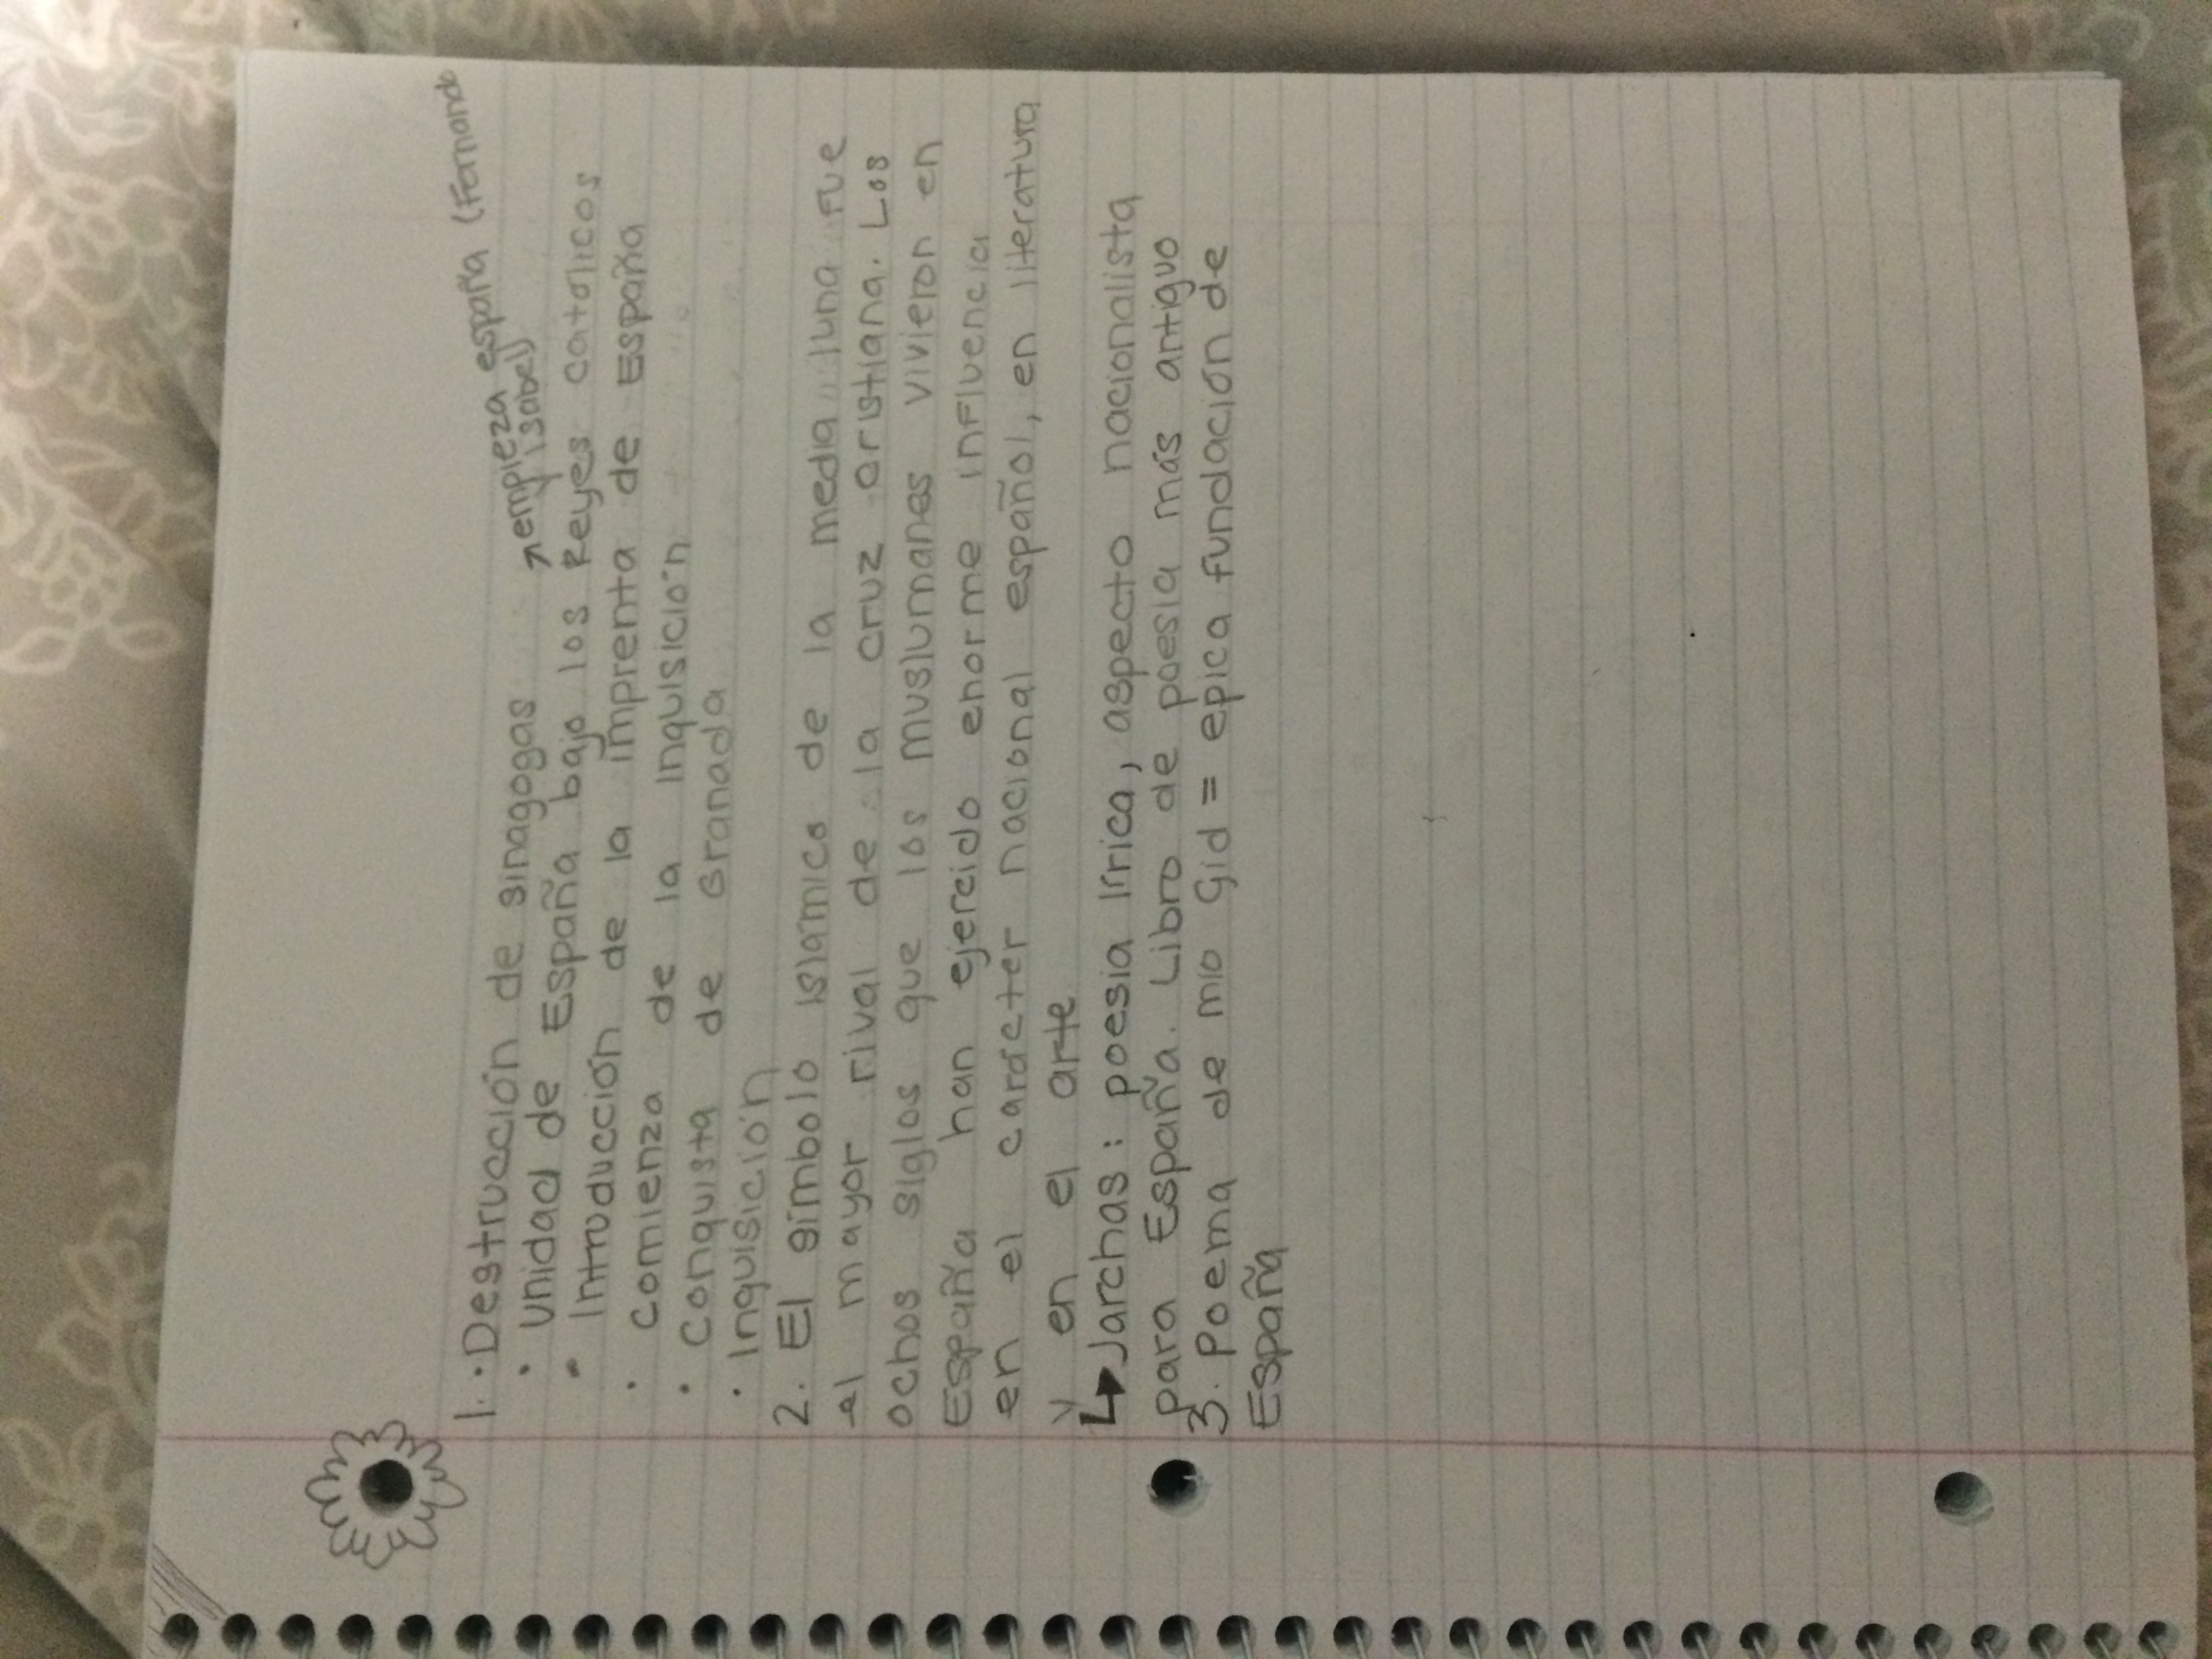 1. • Destrucción de sinagogas
↗ empieza españa (Fernando
y isabel)
• Unidad de España bajo los Reyes católicos
• Introducción de la imprenta de España
• comienza de la inquisición
• conquista de Granada
• Inquisición
2. El símbolo islámico de la media luna fue
el mayor rival de la cruz cristiana. Los
ochos siglos que los muslumanes vivieron en
España han ejercido enorme influencia
en el carácter nacional español, en literatura
y en el arte
↳ Jarchas: poesia lírica, aspecto nacionalista
para España. Libro de poesia más antiguo
3. Poema de mio Cid = epica fundación de
España